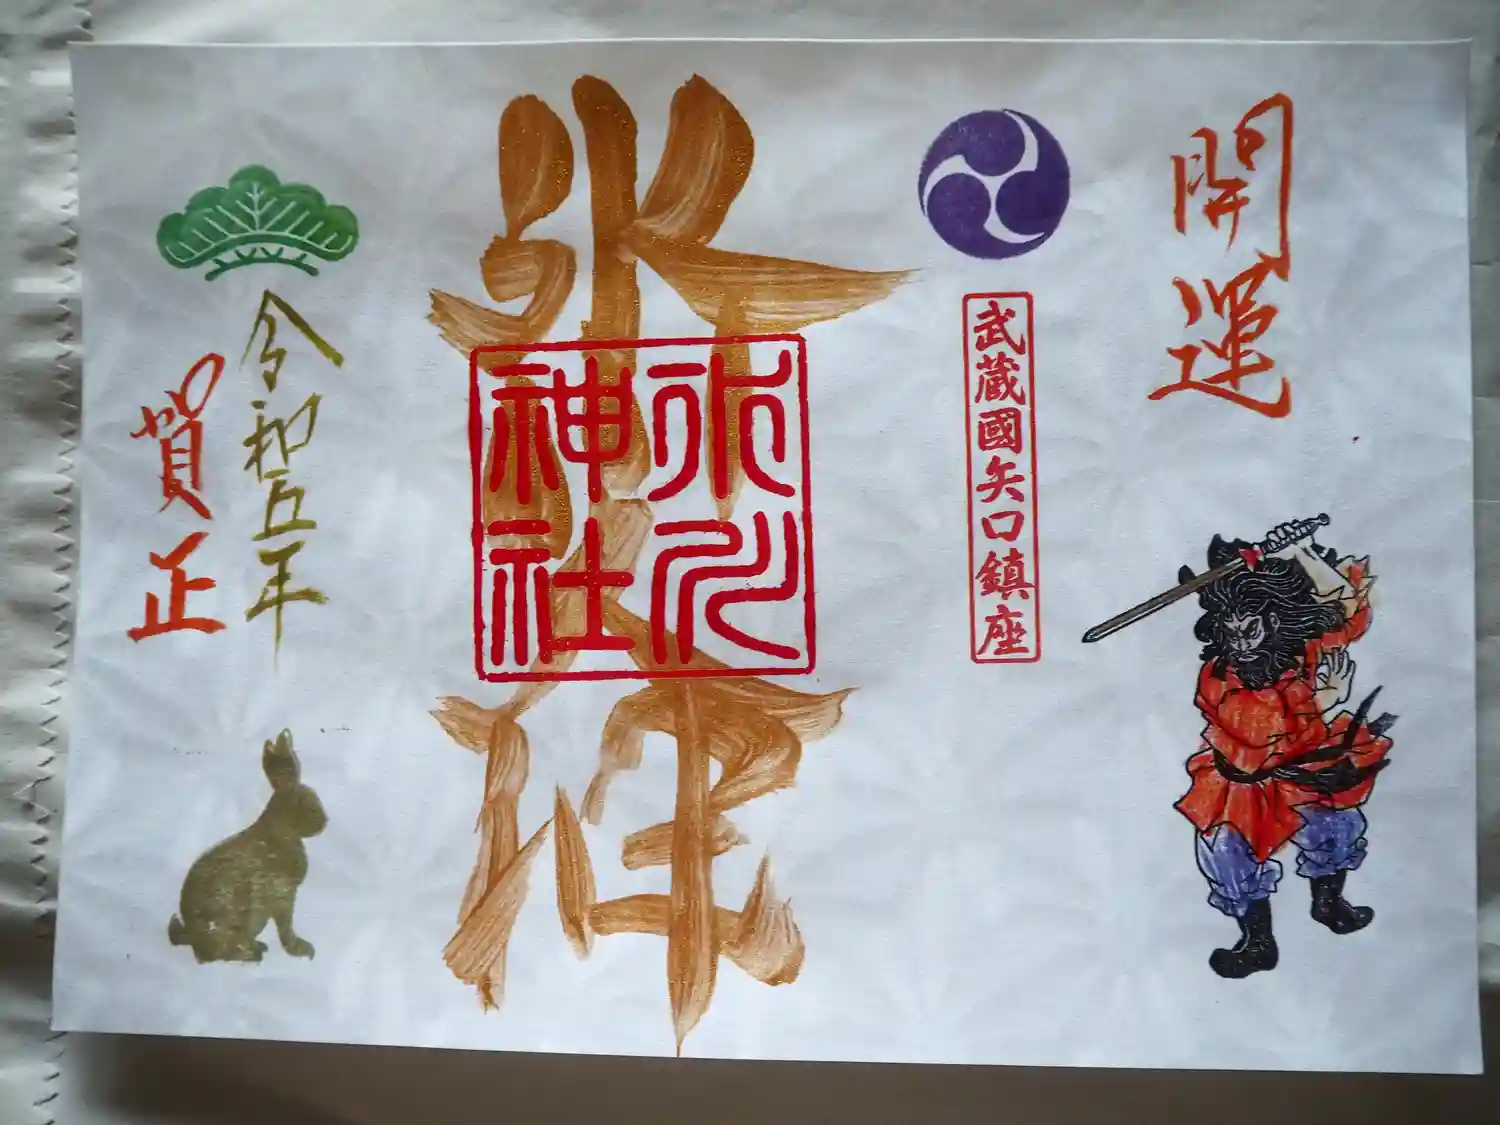 開運
武蔵國矢口鎮座
氷川
氷川
神社
令和五年
賀正